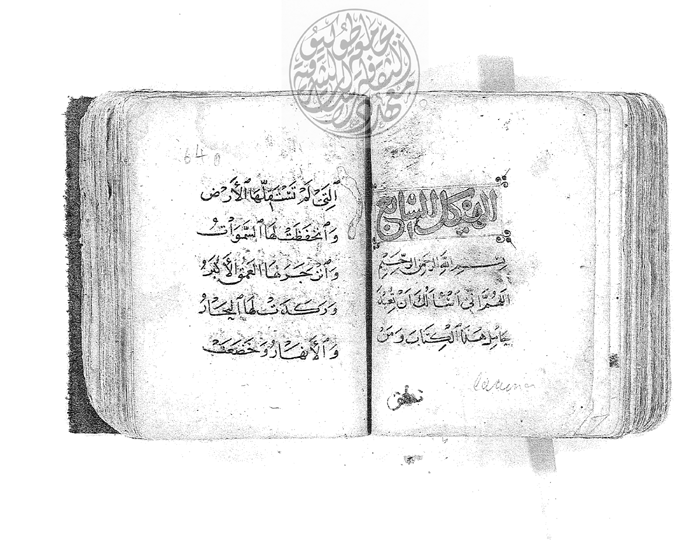 الهيكل السابع
بسم الله الرحمن الرحيم
اللهم اني اسالك ان تعيذ
حامل هذا الكتاب ومن
64
التي لم تستقلها الأرض
وانخفظت لها السموات
وانزجر لها العمق الأكبر
وركدت لها البحار
والأنهار وخضعت